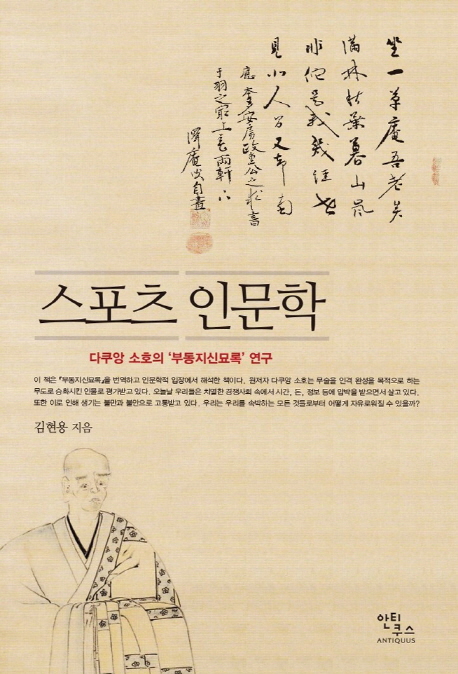 坐一草庵吾老矣
満林秋葉暮山
見小人
스포츠 인문학
다쿠앙 소호의 '부동지신묘록' 연구
이 책은 『부동지신묘록』을 번역하고 인문학적 입장에서 해석한 책이다. 원저자 다쿠앙 소호는 무술을 인격 완성을 목적으로 하는
무도로 승화시킨 인물로 평가받고 있다. 오늘날 우리들은 치열한 경쟁사회 속에서 시간, 돈, 정보 등에 압박을 받으면서 살고 있다.
또한 이로 인해 생기는 불만과 불안으로 고통받고 있다. 우리는 우리를 속박하는 모든 것들로부터 어떻게 자유로워질 수 있을까?
김현용 지음
안티
쿠스
ANTIQUUS